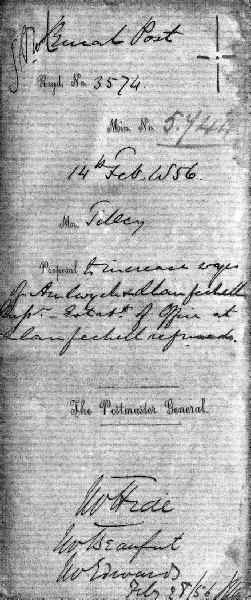 Rural Post
Regd. No. 3574.
Min. No. 5.744
14th Feb. 1856.
Mr. Tilley
Proposal to increase wages
of Amlwych & Llanfechell
Estabt. of Office at
Llanfechell refused.
The Postmaster General.
Mr Hyde
Mr Beaufort
Mr Edwards
Feby 28/56